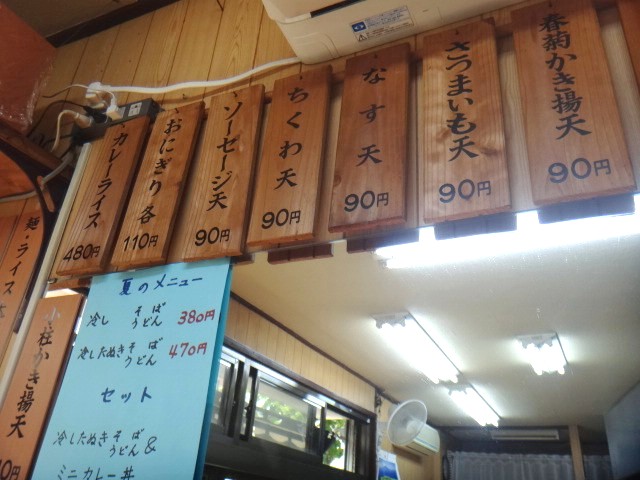 春菊かき揚天
90円
さつまいも天
90円
なす天
90円
ちくわ天
90円
ソーセージ天
90円
おにぎり各
110円
カレーライス
480円
麺・ライス
小柱かき揚天
夏のメニュー
冷し そば うどん 380円
冷したぬき そば うどん 470円
セット
冷したぬき そば うどん &
ミニカレー丼